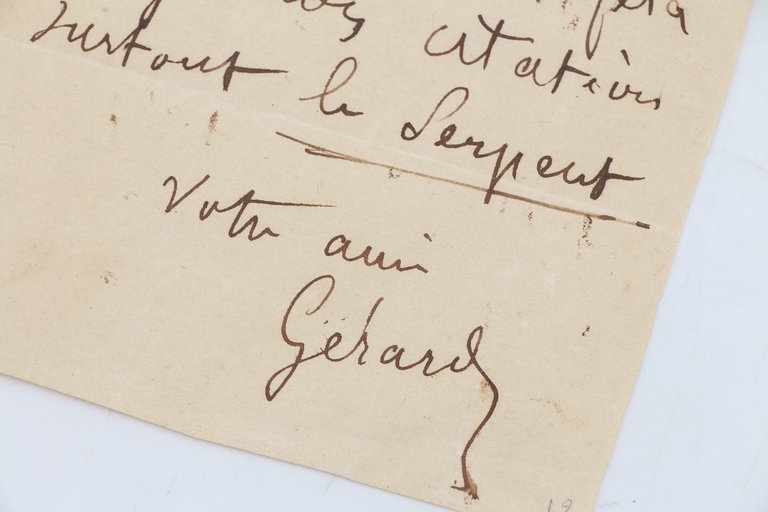 citation
surtout le Serpent
Votre ami
Gérard